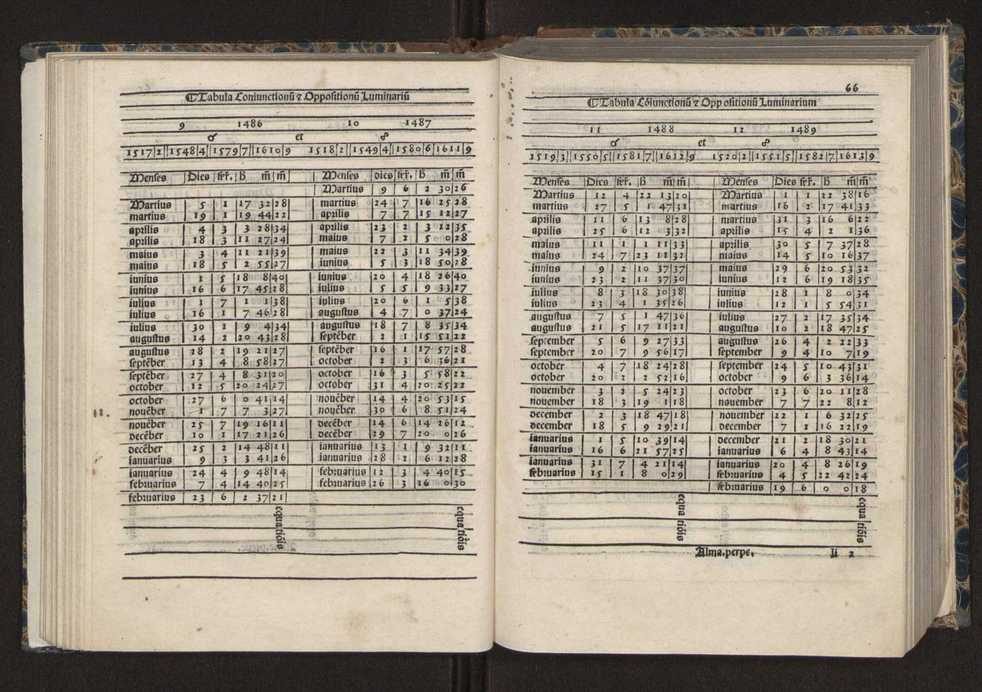 Tabula Coniunctionū ⁊ Oppositionū Luminariū
9 1486 10 1487
☌ et ☍
1517 2 1548 4 1579 7 1610 9 1518 2 1549 4 1580 6 1611 9
Menses Dies fer̄. h m̄ m̄ Menses dies fer̄. h m̄ m̄
Martius 9 6 2 30 26
Martius 5 1 17 32 28 martius 24 7 16 25 28
martius 19 1 19 44 22 aprilis 7 7 15 12 27
aprilis 4 3 3 28 34 aprilis 23 2 3 12 35
aprilis 18 3 11 27 24 maius 7 2 5 0 28
maius 3 4 11 21 39 maius 22 3 11 34 39
maius 18 5 2 55 27 iunius 5 3 18 50 28
iunius 1 5 18 8 40 iunius 20 4 18 26 40
iunius 16 6 17 45 28 iulius 5 5 9 33 27
iulius 1 7 1 1 38 iulius 20 6 1 5 38
iulius 16 1 7 46 28 augustus 4 7 0 37 24
iulius 30 1 9 4 34 augustus 18 7 8 35 34
augustus 14 2 20 43 28 septēber 2 1 15 51 22
augustus 28 2 19 21 27 septēber 16 1 17 57 28
septēber 13 4 8 58 27 october 2 3 6 16 21
septēber 27 4 8 31 20 october 16 3 5 58 22
october 12 5 20 24 27 october 31 4 20 25 22
october 27 6 0 41 14 nouēber 14 4 20 53 15
nouēber 1 7 7 3 27 nouēber 30 6 8 51 24
nouēber 25 7 19 16 11 decēber 14 6 14 26 12
decēber 10 1 17 21 26 decēber 29 7 20 0 26
decēber 25 2 14 48 11 ianuarius 13 1 9 32 11
ianuarius 9 3 3 41 26 ianuarius 28 1 6 12 28
ianuarius 24 4 9 48 14 februarius 12 3 4 40 15
februarius 7 4 14 40 25 februarius 26 3 16 0 30
februarius 23 6 2 37 21
equa tiōis equa tiōis
66
Tabula Cōiunctionū ⁊ Oppositionū Luminarium
11 1488 12 1489
☌ et ☍
1519 3 1550 5 1581 7 1612 9 1520 2 1551 5 1582 7 1613 9
Menses Dies fer̄. h m̄ m̄ Menses Dies fer̄. h m̄ m̄
Martius 12 4 22 13 20 Martius 1 1 22 38 16
martius 27 5 1 47 21 martius 16 2 17 41 33
aprilis 11 6 13 8 28 martius 31 3 16 6 22
aprilis 25 6 12 3 32 aprilis 15 4 2 1 36
maius 11 1 1 11 33 aprilis 30 5 7 37 28
maius 24 7 23 11 32 maius 14 5 10 16 37
iunius 9 2 10 37 37 maius 29 6 20 53 32
iunius 23 2 11 37 30 iunius 12 6 19 18 35
iulius 8 3 18 30 38 iunius 28 1 8 0 34
iulius 23 4 1 35 26 iulius 12 1 5 54 31
augustus 7 5 1 47 36 iulius 27 2 17 35 34
augustus 21 5 17 11 21 augustus 10 2 18 47 25
september 5 6 9 27 33 augustus 26 4 2 22 33
september 20 7 9 56 17 september 9 4 10 7 19
october 4 7 18 24 28 september 24 5 10 43 31
october 20 2 2 52 16 october 9 6 3 36 14
nouember 3 2 5 24 23 october 23 6 20 11 28
nouember 18 3 19 1 18 nouember 7 7 22 8 12
december 2 3 18 47 18 nouember 22 1 6 32 25
december 18 5 9 29 21 december 7 2 16 22 19
ianuarius 1 5 10 39 14 december 21 2 18 30 21
ianuarius 16 6 21 57 25 ianuarius 6 4 8 43 14
ianuarius 31 7 4 21 14 ianuarius 20 4 8 26 19
februarius 15 1 8 0 29 februarius 4 5 22 42 24
februarius 19 6 0 0 18
equa tiōis equa tiōis
Alma. perpe. Ii 2